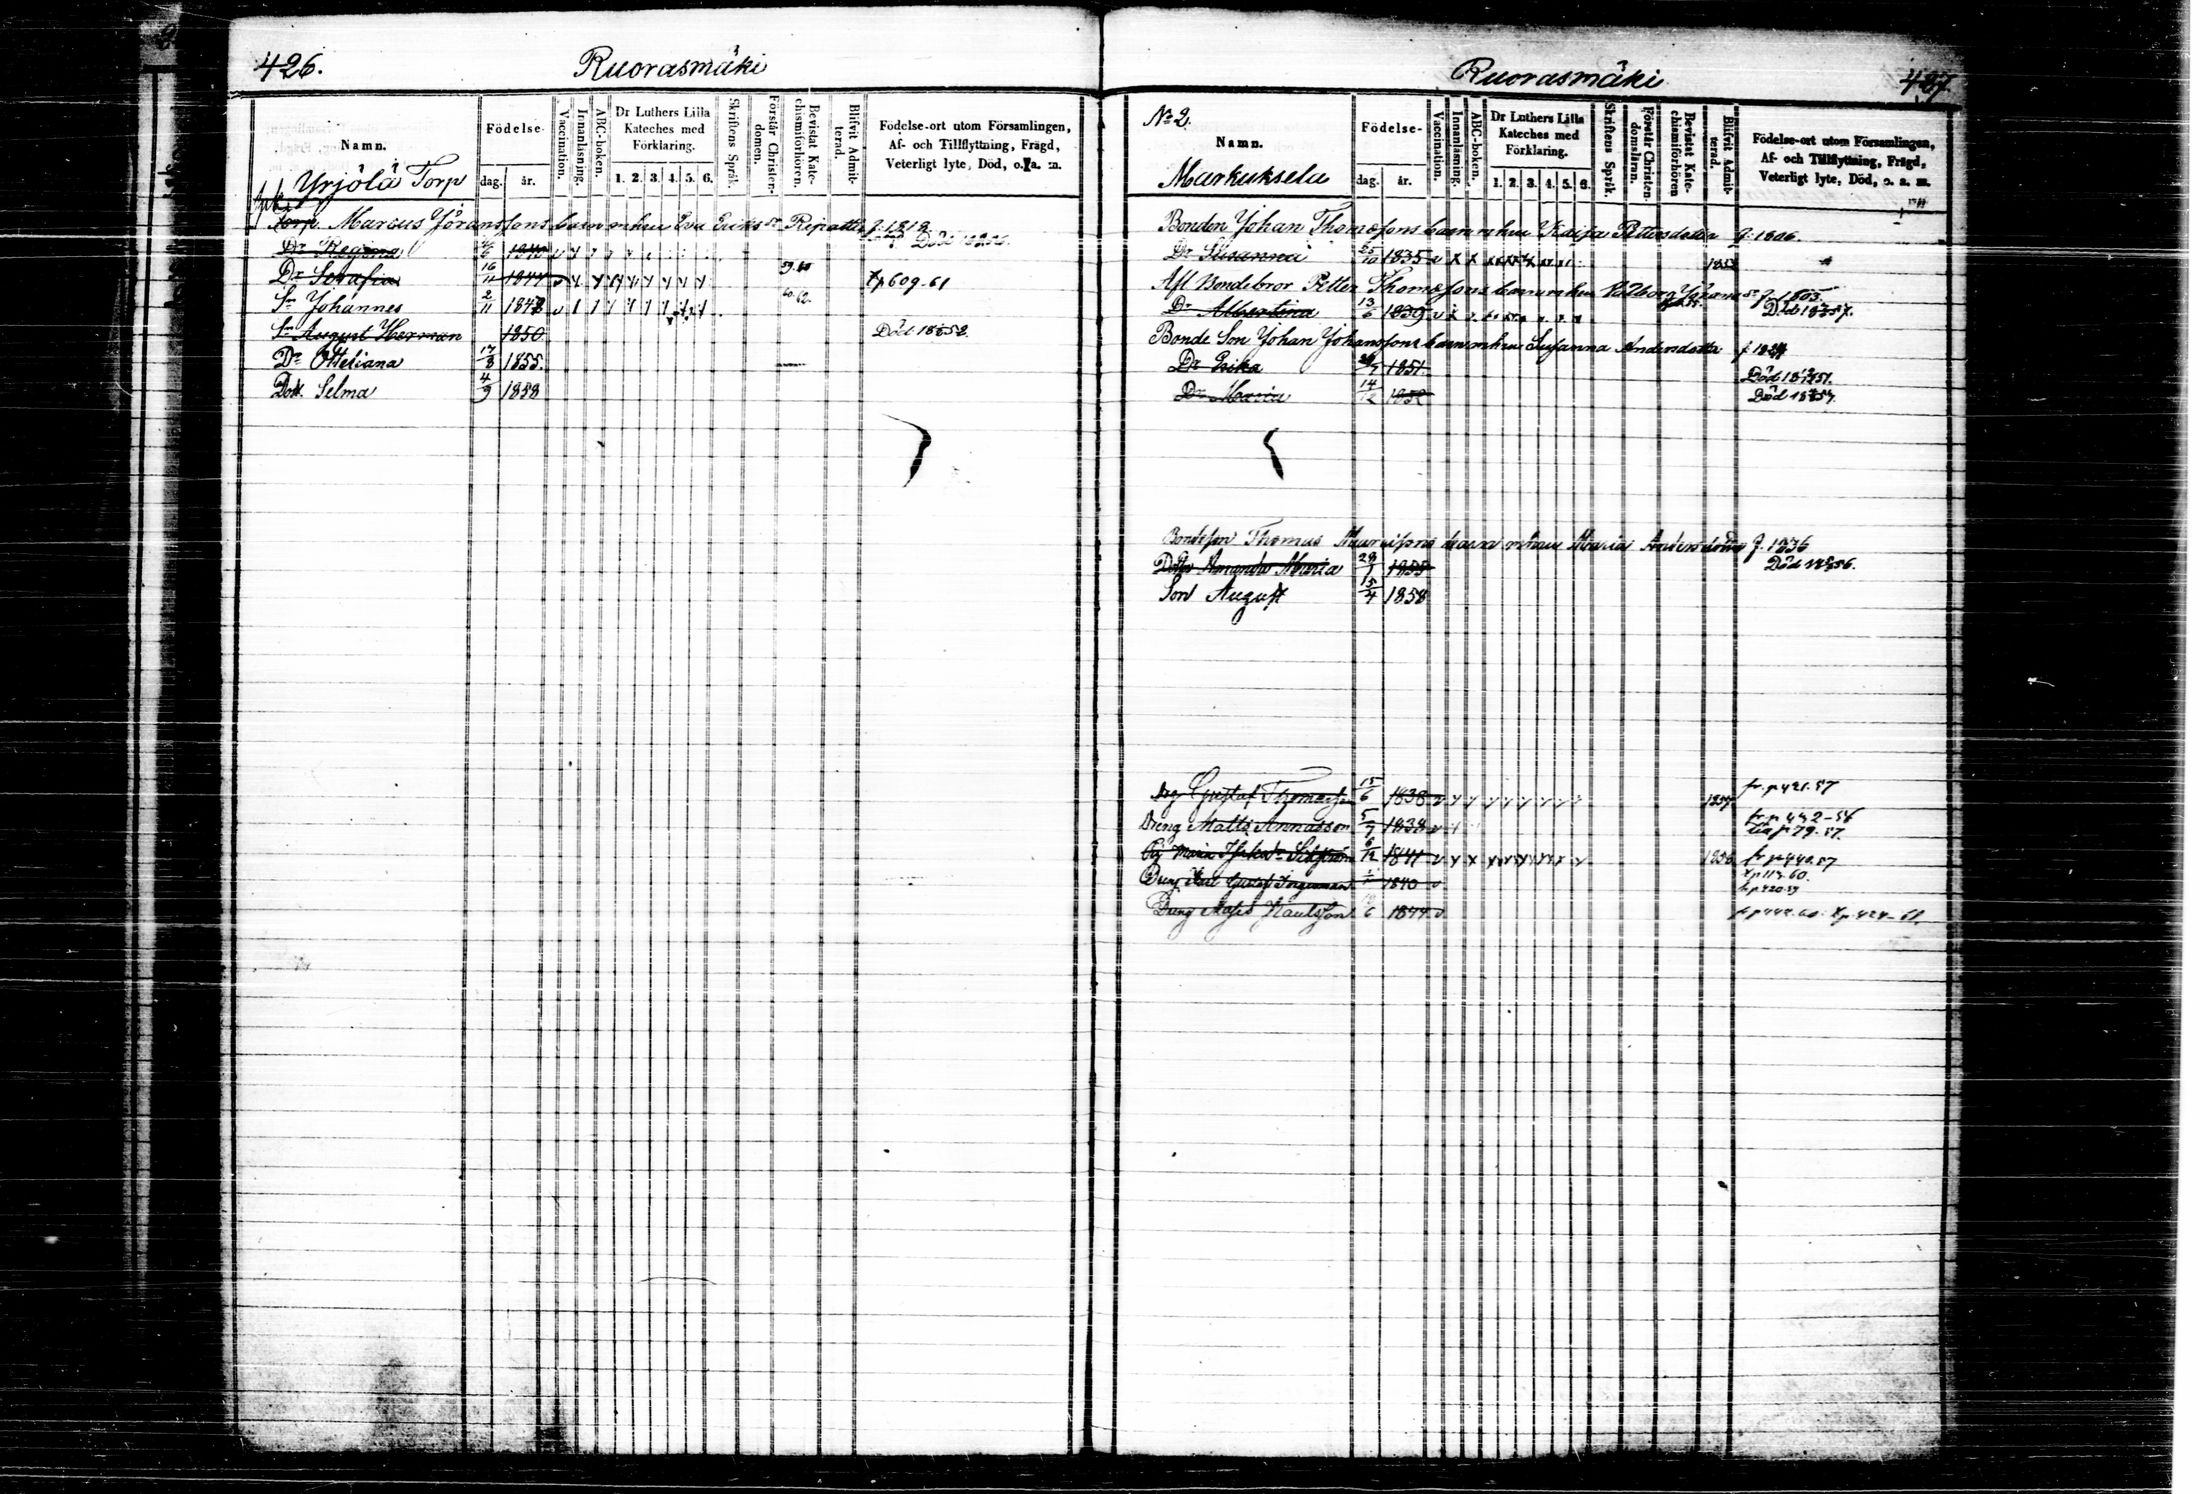 426. Ruorasmäki
Namn. Födelse- dag. år. Vaccination. Innanläsning. ABC-boken. Dr Luthers Lilla Kateches med Förklaring. 1. 2. 3. 4. 5. 6. Skriftens Språk. Förstår Christendomen. Bevistat Katechismiförhören. Blifvit Admitterad. Födelse-ort utom Församlingen, Af- och Tillflyttning, Frägd, Veterligt lyte, Död, o. a. m.
Yrjölä Torp
Torp. Marcus Jöranssons barn m hu Eva Eriksdr Ripatti f. 1812
Dr Regina Död
Dr Serafia 16/11 1844 59.60 tp 609.61
Sn Johannes 2/11 1848 60.62.
Sn August Herman 1850 Död
Dr Otteliana 17/3 1855.
Dott. Selma 4/9 1858
Ruorasmäki 427
No 2.
Namn. Födelse- dag. år. Vaccination. Innanläsning. ABC-boken. Dr Luthers Lilla Kateches med Förklaring. 1. 2. 3. 4. 5. 6. Skriftens Språk. Förstår Christendomsläran. Bevistat Katechismiförhören Blifvit Admitterad. Födelse-ort utom Församlingen, Af- och Tillflyttning, Frägd, Veterligt lyte, Död, o. a. m.
Markuksela
Bonden Johan Thomæssons barn m hu Kaisa Pettersdotter f. 1806.
Dr Susanna 25/10 1835 v
Afl Bondebror Petter Thomæssons barn m hu Valborg f. 1805.
Dr Albertina 13/6 1839 v Död
Bonde Son Johan Johanssons barn m hu Susanna Andersdotter
Dr Erika 1851 Död
Dr Maria 14/12 1852 Död
Bondeson Thomas barn m hu Maria Andersdotter f. 1836
Dotter Amanda Maria 28/1 1855 Död
Son August 15/4 1858
Drg Gustaf Thomasson 15/6 1838 v 1857 fr. p 421.57
Dreng Matts 5/7 1838 v fr. p 442-56
till p 79.57.
Maria 6/12 1841 v 1856 fr p 440.57
tp 113.60.
Dreng Karl Gustaf 1840 v fr p 420.59
Dreng Paulsson 1844 v fr p 444.60. tp 424-61.